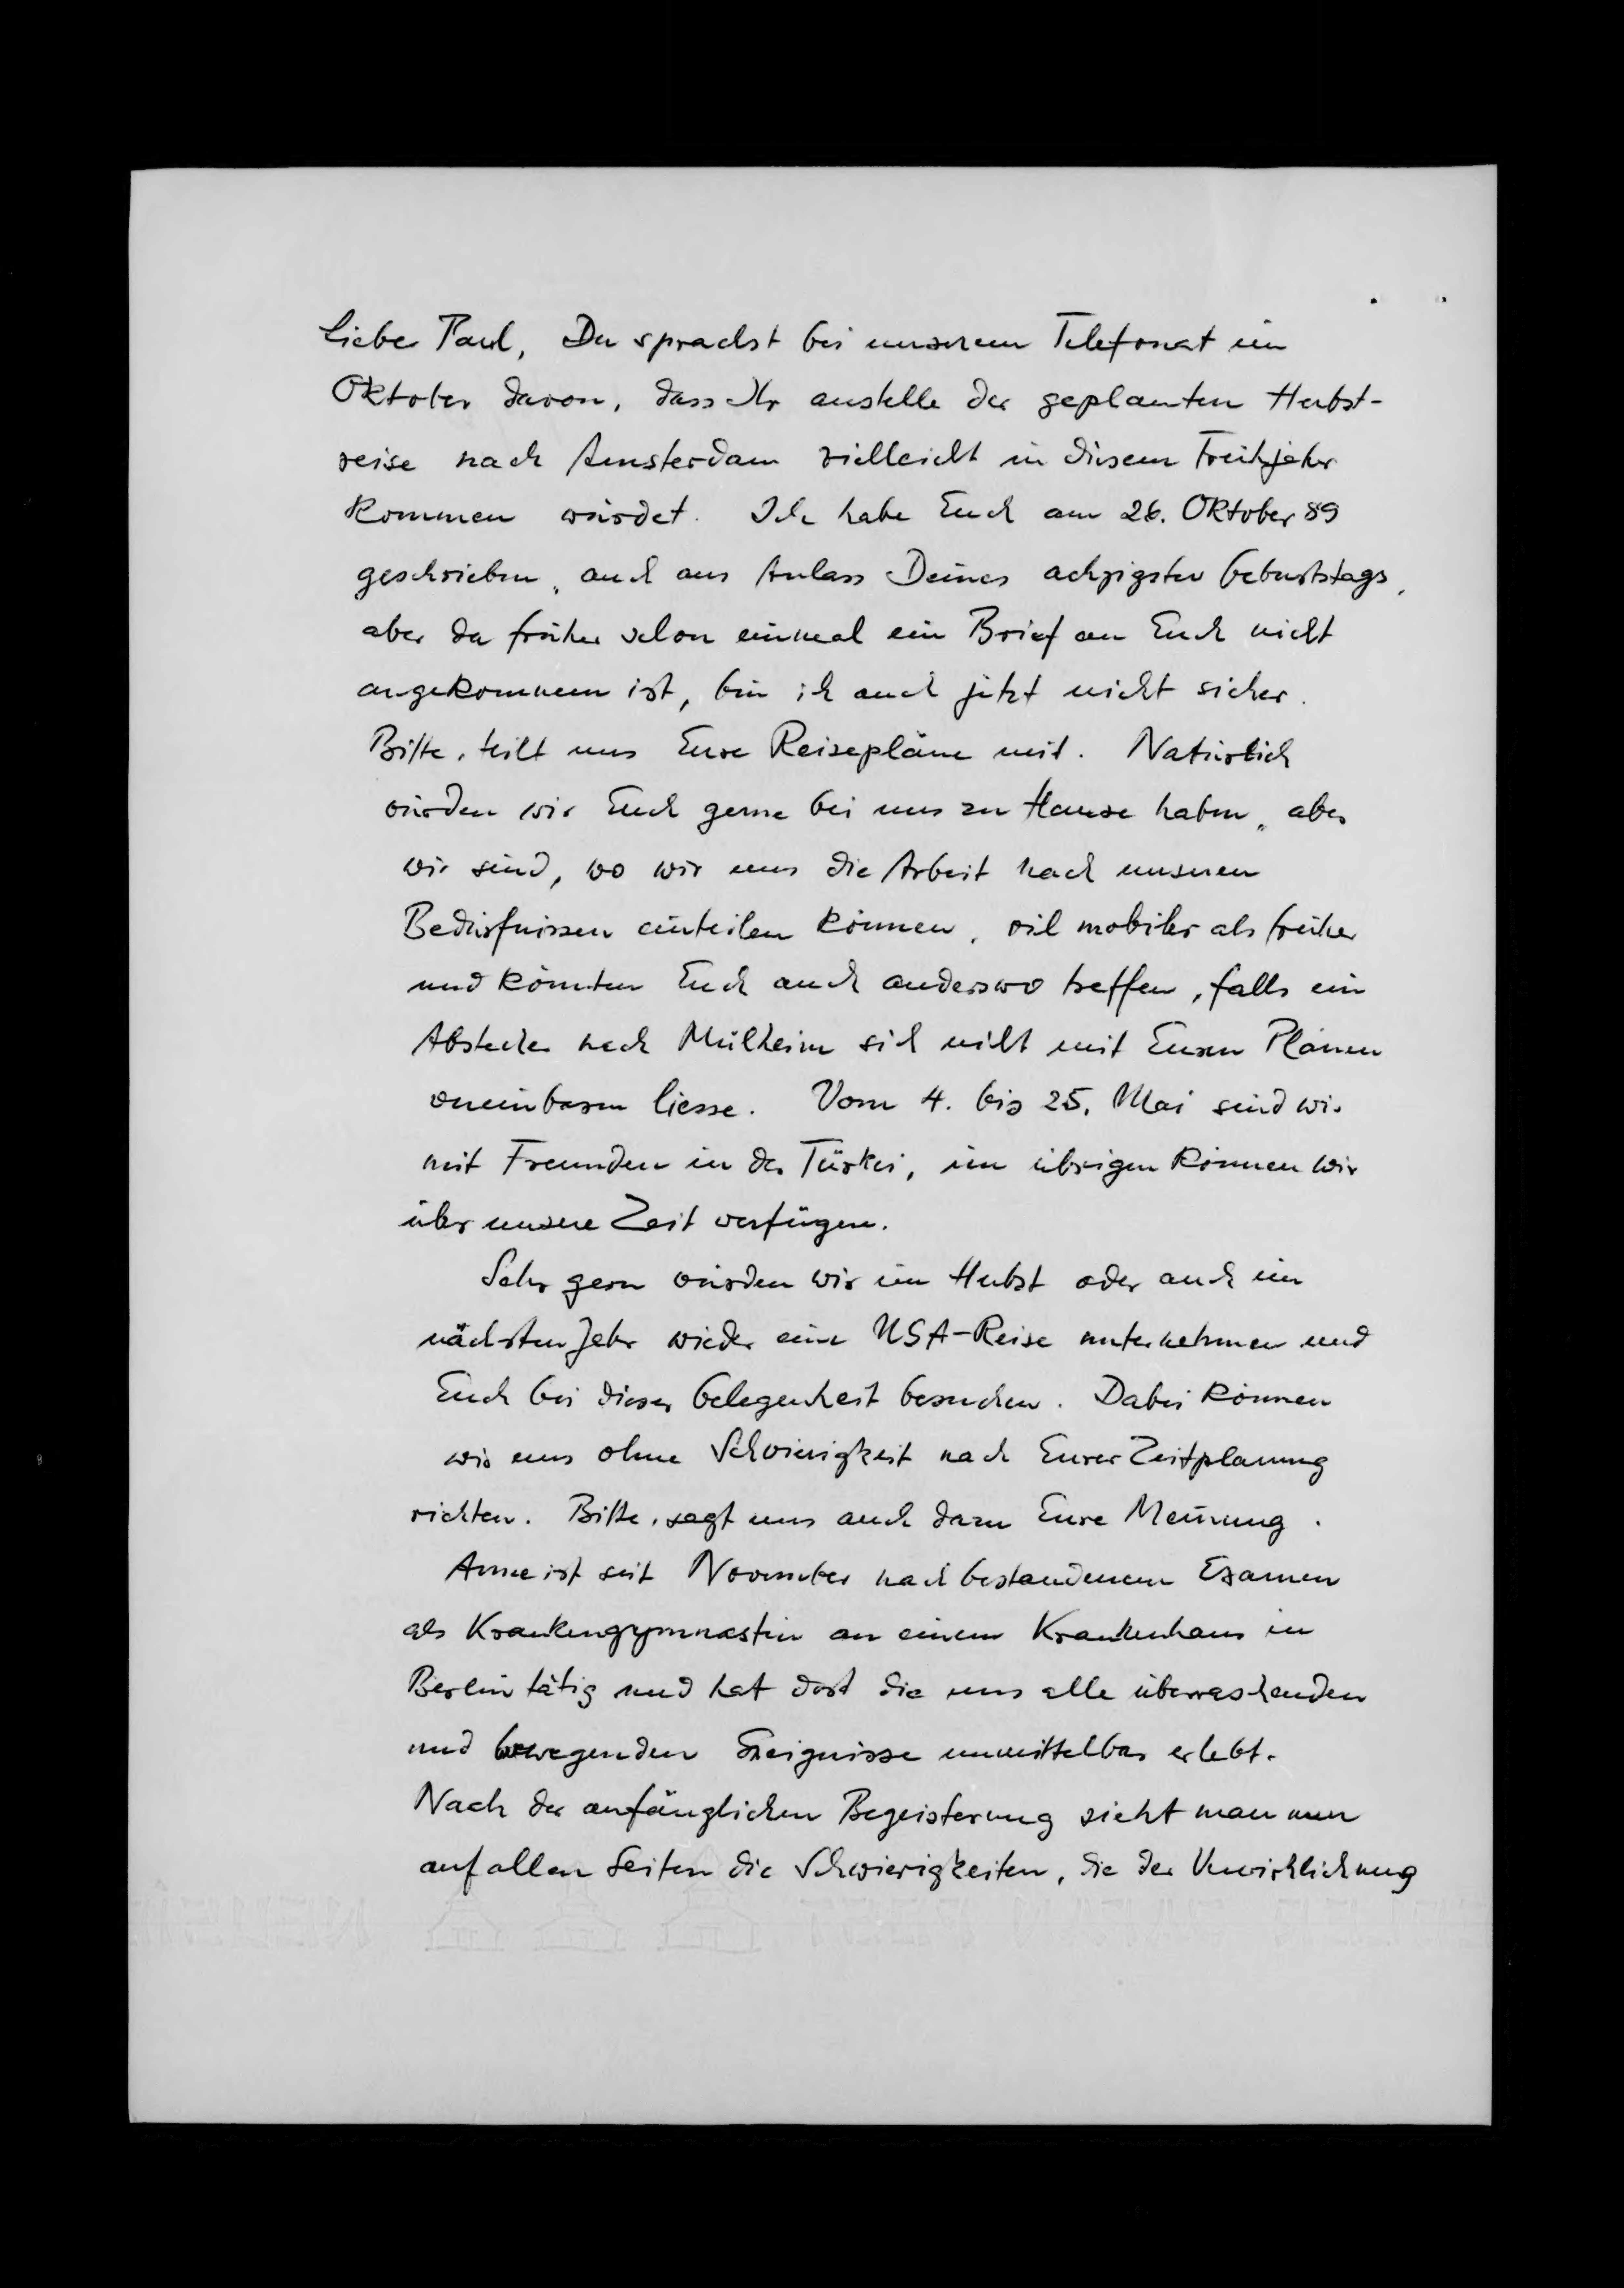 Lieber Paul, Du sprachst bei unserem Telefonat im
Oktober davon, dass Ihr anstelle der geplanten Herbst-
reise nach Amsterdam vielleicht in diesem Frühjahr
kommen würdet. Ich habe Euch am 26. Oktober 89
geschrieben, auch aus Anlass Deines achzigsten Geburtstags,
aber da früher schon einmal ein Brief an Euch nicht
angekommen ist, bin ich auch jetzt nicht sicher.
Bitte, teilt uns Eure Reisepläne mit. Natürlich
würden wir Euch gerne bei uns zu Hause haben, aber
wir sind, wo wir uns die Arbeit nach unseren
Bedürfnissen einteilen können, viel mobiler als früher
und könnten Euch auch anderswo treffen, falls ein
Abstecher nach Mülheim sich nicht mit Euren Plänen
vereinbaren liesse. Vom 4. bis 25. Mai sind wir
mit Freunden in der Türkei, im übrigen können wir
über unsere Zeit verfügen.
Sehr gern würden wir im Herbst oder auch im
nächsten Jahr wieder eine USA-Reise unternehmen und
Euch bei dieser Gelegenheit besuchen. Dabei können
wir uns ohne Schwierigkeit nach Eurer Zeitplanung
richten. Bitte, sagt uns auch dazu Eure Meinung.
Anne ist seit November nach bestandenem Examen
als Krankengymnastin an einem Krankenhaus in
Berlin tätig und hat dort die uns alle überraschenden
und bewegenden Ereignisse unmittelbar erlebt.
Nach der anfänglichen Begeisterung sieht man nun
auf allen Seiten die Schwierigkeiten, die der Verwirklichung